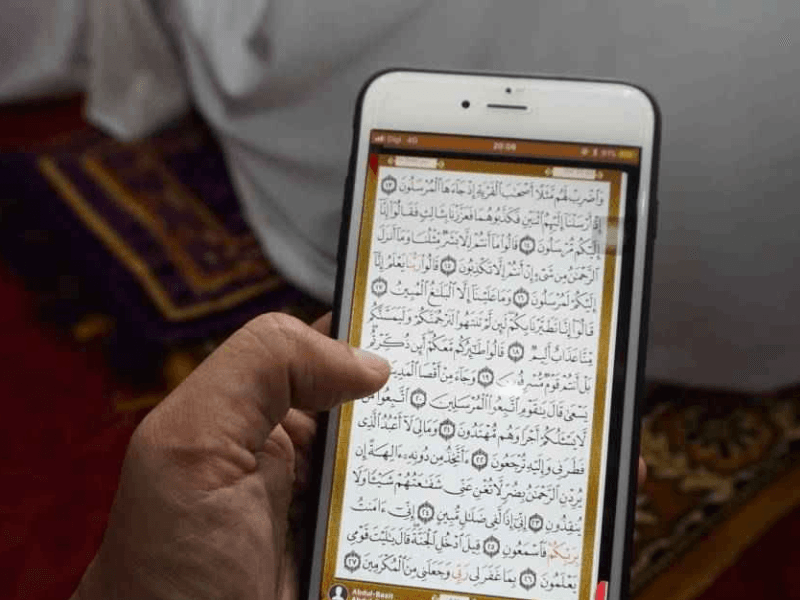 Digi 4G 20:08
وَٱضْرِبْ لَهُم مَّثَلًا أَصْحَـٰبَ ٱلْقَرْيَةِ إِذْ جَآءَهَا ٱلْمُرْسَلُونَ ١٣
إِذْ أَرْسَلْنَآ إِلَيْهِمُ ٱثْنَيْنِ فَكَذَّبُوهُمَا فَعَزَّزْنَا بِثَالِثٍ فَقَالُوٓا۟ إِنَّآ
إِلَيْكُم مُّرْسَلُونَ ١٤ قَالُوا۟ مَآ أَنتُمْ إِلَّا بَشَرٌ مِّثْلُنَا وَمَآ أَنزَلَ
ٱلرَّحْمَـٰنُ مِن شَىْءٍ إِنْ أَنتُمْ إِلَّا تَكْذِبُونَ ١٥ قَالُوا۟ رَبُّنَا يَعْلَمُ إِنَّآ
إِلَيْكُمْ لَمُرْسَلُونَ ١٦ وَمَا عَلَيْنَآ إِلَّا ٱلْبَلَـٰغُ ٱلْمُبِينُ ١٧
قَالُوٓا۟ إِنَّا تَطَيَّرْنَا بِكُمْ لَئِن لَّمْ تَنتَهُوا۟ لَنَرْجُمَنَّكُمْ وَلَيَمَسَّنَّكُم
مِّنَّا عَذَابٌ أَلِيمٌ ١٨ قَالُوا۟ طَـٰٓئِرُكُم مَّعَكُمْ أَئِن ذُكِّرْتُم
بَلْ أَنتُمْ قَوْمٌ مُّسْرِفُونَ ١٩ وَجَآءَ مِنْ أَقْصَا
يَسْعَىٰ قَالَ يَـٰقَوْمِ ٱتَّبِعُوا۟ ٱلْمُرْسَلِينَ ٢٠ ٱتَّبِعُوا۟ مَن
لَّا يَسْـَٔلُكُمْ أَجْرًا وَهُم مُّهْتَدُونَ ٢١ وَمَا لِىَ لَآ أَعْبُدُ ٱلَّذِى
فَطَرَنِى وَإِلَيْهِ تُرْجَعُونَ ٢٢ ءَأَتَّخِذُ مِن دُونِهِۦٓ ءَالِهَةً إِن
يُرِدْنِ ٱلرَّحْمَـٰنُ بِضُرٍّ لَّا تُغْنِ عَنِّى شَفَـٰعَتُهُمْ شَيْـًٔا وَلَا
يُنقِذُونِ ٢٣ إِنِّىٓ إِذًا لَّفِى ضَلَـٰلٍ مُّبِينٍ ٢٤ إِنِّىٓ ءَامَنتُ
بِرَبِّكُمْ فَٱسْمَعُونِ ٢٥ قِيلَ ٱدْخُلِ ٱلْجَنَّةَ قَالَ يَـٰلَيْتَ قَوْمِى
يَعْلَمُونَ ٢٦ بِمَا غَفَرَ لِى رَبِّى وَجَعَلَنِى مِنَ ٱلْمُكْرَمِينَ ٢٧
Abdul-Basit